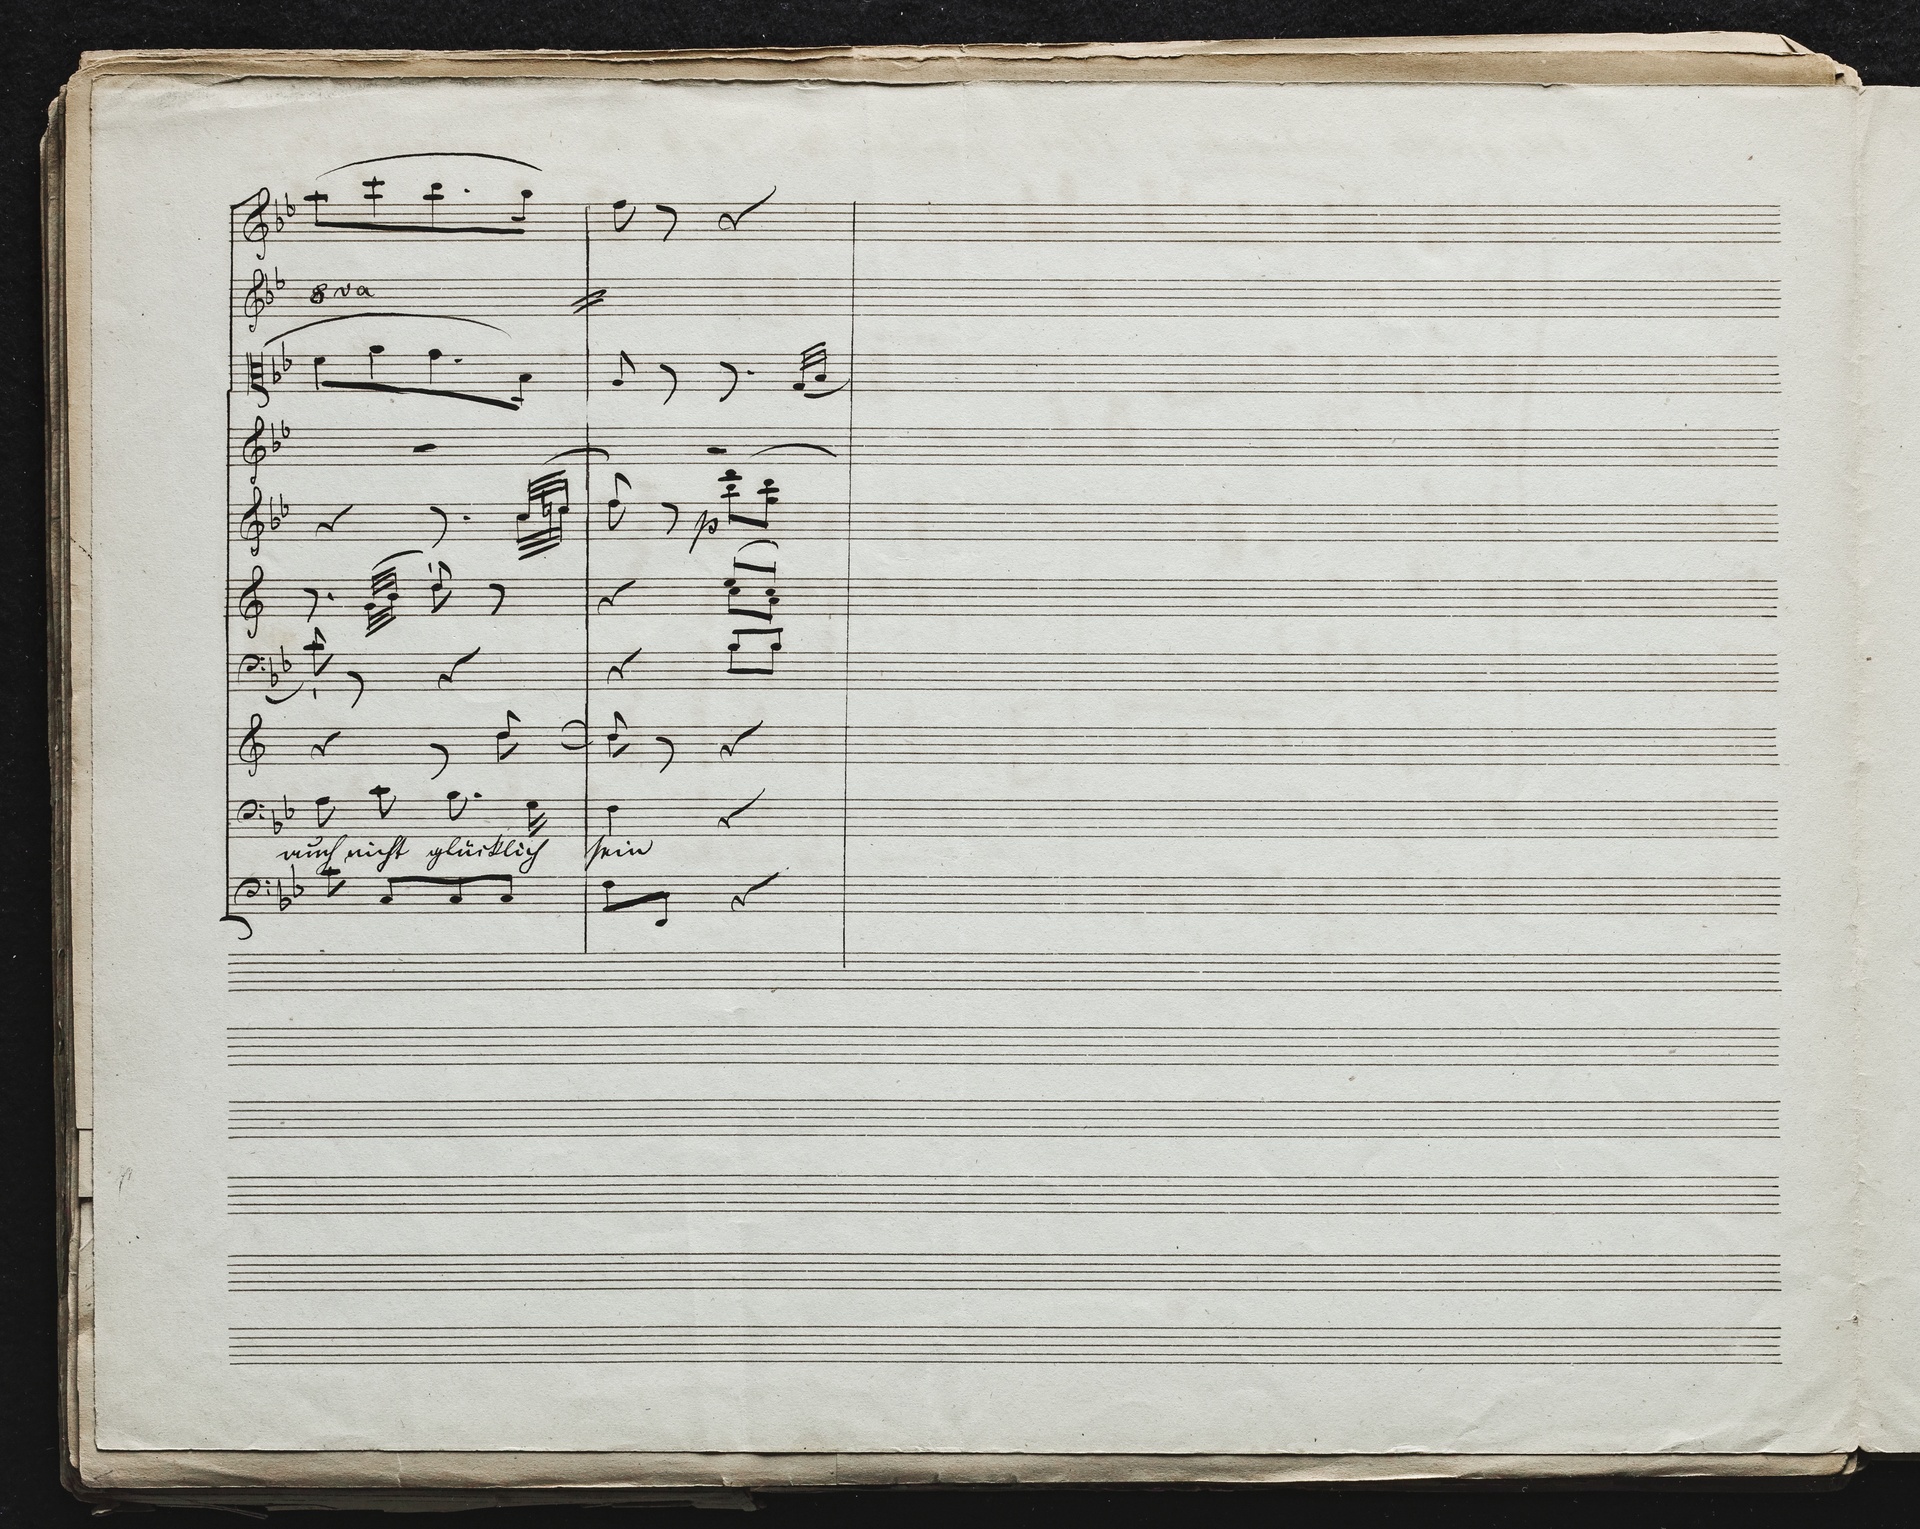 8va
p
auch nicht glücklich sein